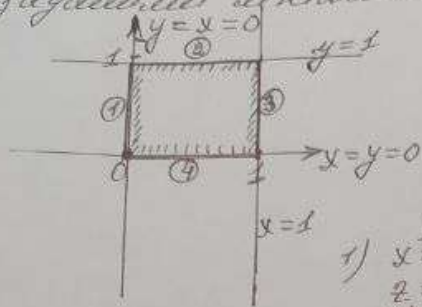 y = x = 0
②
1
y = 1
①
③
0
④
1
x = y = 0
x = 1
1) x
z